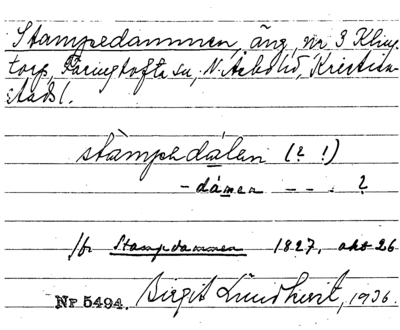 Stampedammen, äng, nr 3 Kling-
torp, Färingtofta sn, N. Åsbo hd, Kristian-
stads l.
stàmpedàlen (? !)
- dámen - - . ?
Stampdammen 1827, akt 26
Nr 5494. Birgit Lundkvist, 1936.